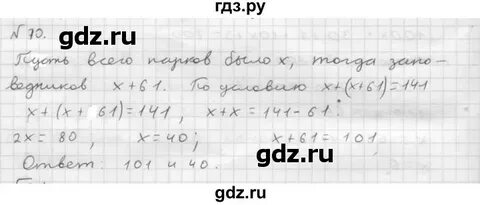 гдз.ру
№ 70.
Пусть всего парков было x, тогда запо-
ведников x+61. По условию x+(x+61)=141
x+(x+61)=141, x+x=141-61;
2x=80, x=40; x+61=101
Ответ: 101 и 40.
gdz.ru gdz.ru